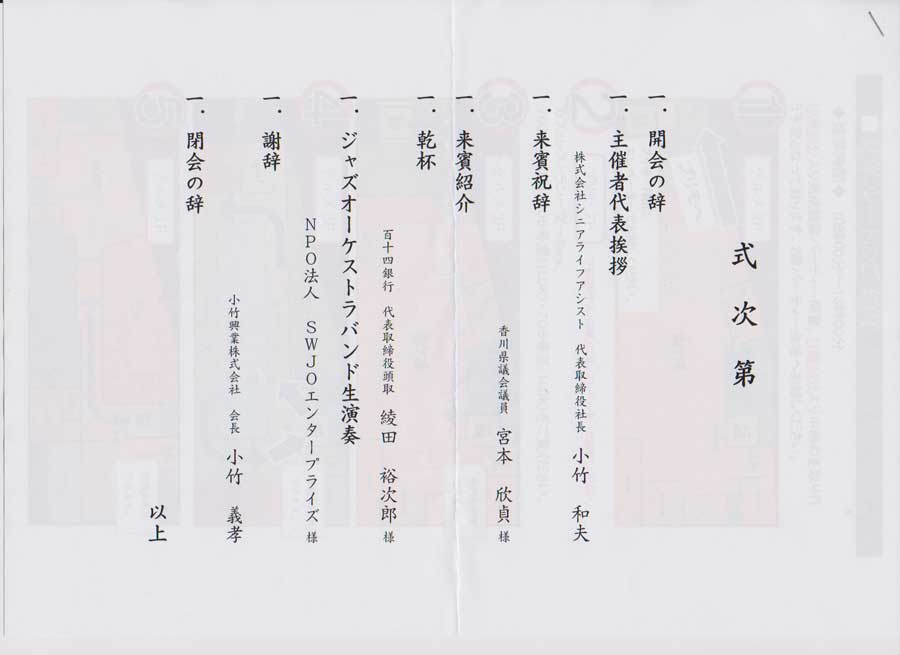 式次第
一．開会の辞
一．主催者代表挨拶
株式会社シニアライフアシスト　代表取締役社長　小竹　和夫
一．来賓祝辞
香川県議会議員　宮本　欣貞　様
一．来賓紹介
一．乾杯
百十四銀行　代表取締役頭取　綾田　裕次郎　様
一．ジャズオーケストラバンド生演奏
ＮＰＯ法人　ＳＷＪＯエンタープライズ　様
一．謝辞
小竹興業株式会社　会長　小竹　義孝
一．閉会の辞
以上